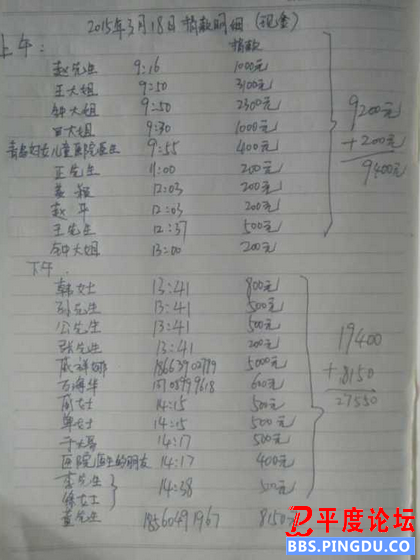 2015年3月18日捐款明细(现金)
上午: 捐款
赵先生 9:16 1000元
王大姐 9:50 3100元
钟大姐 9:50 2300元
大姐 9:30 1000元
青岛妇女儿童医院医生 9:55 400元
王先生 11:00 200元
姜 12:03 200元
赵平 12:03 200元
王先生 12:37 500元
钟大姐 13:00 200元
9200元
+200元
9400元
下午
韩女士 13:41 800元
孙先生 13:41 500元
公先生 13:41 500元
张先生 13:41 200元
5000元
600元
女士 14:15 500元
单女士 14:15 500元
于大 14:17 500元
医院医生的朋友 14:17 400元
李先生
徐女士 14:38 500元
董先生 18560491967 8150元
19400
+8150
27550
平度论坛
BBS.PINGDU.CO